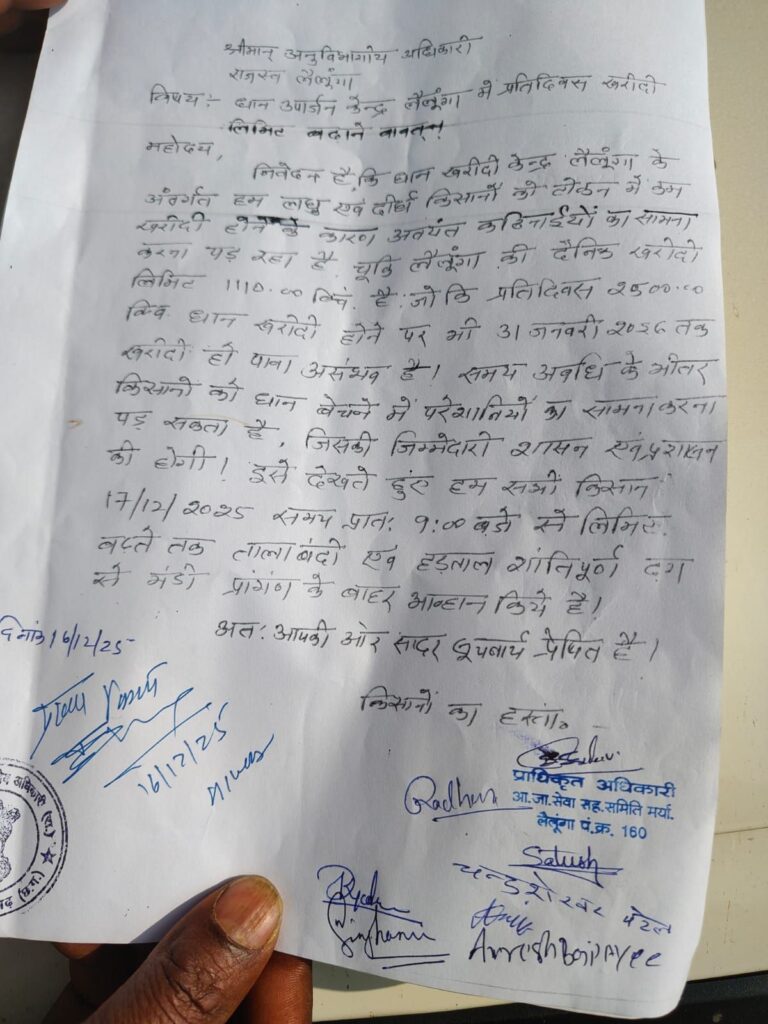 श्रीमान् अनुविभागीय अधिकारी
राजस्व लैलूंगा
विषय:- धान उपार्जन केन्द्र लैलूंगा में प्रतिदिवस खरीदी
लिमिट बढाने बाबत्!
महोदय,
निवेदन है, कि धान खरीदी केन्द्र लैलूंगा के
अंतर्गत हम लघु एवं दीर्घ किसानों को टोकन में कम
खरीदी होने के कारण अत्यंत कठिनाईयों का सामना
करना पड़ रहा है. चूकि लैलूंगा की दैनिक खरीदी
लिमिट 1110.00 क्विं. है. जो कि प्रतिदिवस 2500.00
क्विं धान खरीदी होने पर भी 31 जनवरी 2026 तक
खरीदी हो पाना असंभव है। समय अवधि के भीतर
किसानों को धान बेचने में परेशानियों का सामना करना
पड़ सकता है, जिसकी जिम्मेदारी शासन एवं प्रशासन
की होगी! इसे देखते हुएं हम सभी किसान
17/12/2025 समय प्रात: 9:00 बजे से लिमिट
बढ़ते तक तालाबंदी एवं हड़ताल शांतिपूर्ण ढंग
से मंडी प्रांगण के बाहर आव्हान किये है।
अत: आपकी ओर सादर सूचनार्थ प्रेषित है।
दिनांक 16/12/25
किसानों का हस्ता.
16/12/25
प्राधिकृत अधिकारी
आ.जा.सेवा सह.समिति मर्या.
लैलूंगा पं.क्र. 160
Satush
चन्द्रशेखर पटेल